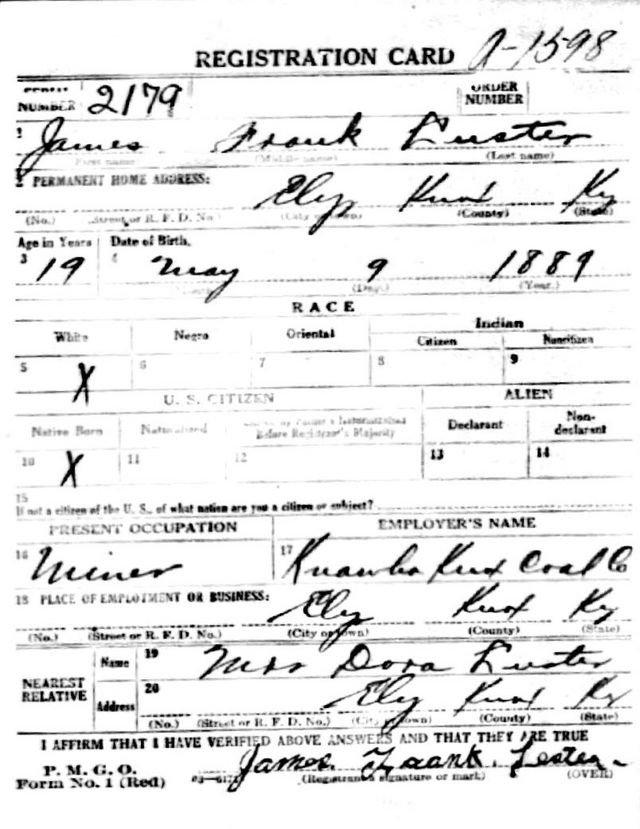 REGISTRATION CARD A-1598
SERIAL NUMBER 2179 ORDER NUMBER
1 James Frank Luster
First name (Middle name) (Last name)
2 PERMANENT HOME ADDRESS:
Ely Knox Ky
(No.) Street or R. F. D. No.) (City or town) (County) (State)
Age in Years Date of Birth.
3 19 4 May 9 1889
(Day.) (Year.)
RACE
White Negro Oriental Indian
Citizen Noncitizen
5 X 6 7 8 9
U. S. CITIZEN ALIEN
Native Born Naturalized Citizen by Father's Naturalization Before Registrant's Majority Declarant Non-declarant
10 X 11 12 13 14
15
If not a citizen of the U. S., of what nation are you a citizen or subject?
PRESENT OCCUPATION EMPLOYER'S NAME
16 Miner 17 Knox Coal Co
18 PLACE OF EMPLOYMENT OR BUSINESS:
Ely Knox Ky
(No.) (Street or R. F. D. No.) (City or town) (County) (State)
NEAREST RELATIVE Name 19 Mrs Dora Luster
Address 20 Ely Knox Ky
(No.) (Street or R. F. D. No.) (City or town) (County) (State)
I AFFIRM THAT I HAVE VERIFIED ABOVE ANSWERS AND THAT THEY ARE TRUE
P. M. G. O.
Form No. 1 (Red) James Fraank Lester
(Registrant's signature or mark) (OVER)